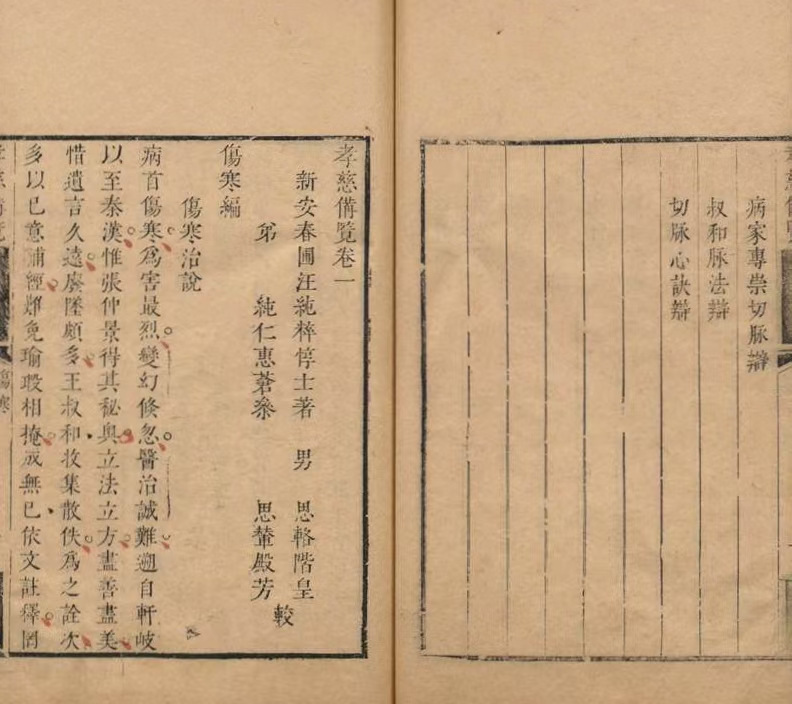 病家專崇切脉辯
叔和脉法辯
切脉心訣辯
孝慈備覽卷一
新安春圃汪純粹惇士著　男　思輅階皇
弟　純仁惠蒼叅　思輦殿芳
較
傷寒編
傷寒治說
病首傷寒爲害最烈變幻倏忽醫治誠難遡自軒岐
以至秦漢惟張仲景得其秘奥立法立方盡善盡美
惜遺言久遠廢墜頗多王叔和收集散佚爲之詮次
多以已意補經難免瑜瑕相掩成無已依文註釋罔
傷寒